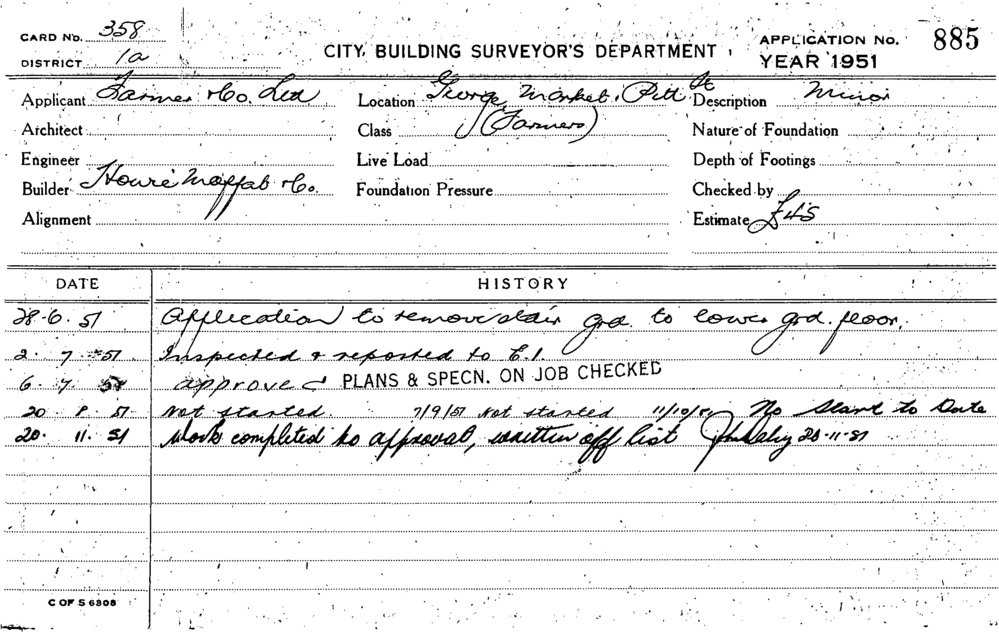 CARD No. 358
DISTRICT 1a
CITY BUILDING SURVEYOR'S DEPARTMENT
APPLICATION No. 885
YEAR 1951
Applicant Farmer & Co. Ltd
Location George, Market, Pitt St
Description Minor
Architect
Class (Farmers)
Nature of Foundation
Engineer
Live Load
Depth of Footings
Builder Howie Moffat & Co.
Foundation Pressure
Checked by
Alignment
Estimate £45
DATE HISTORY
28.6.51 Application to remove stair grd. to lower grd. floor.
2.7.51 Inspected & reported to E.I.
6.7.51 approved PLANS & SPECN. ON JOB CHECKED
20.8.51 Not started. 7/9/51 Not started 11/10/51 No Start to Date
20.11.51 Work completed to approval, written off list 20-11-51
C OF S 6308